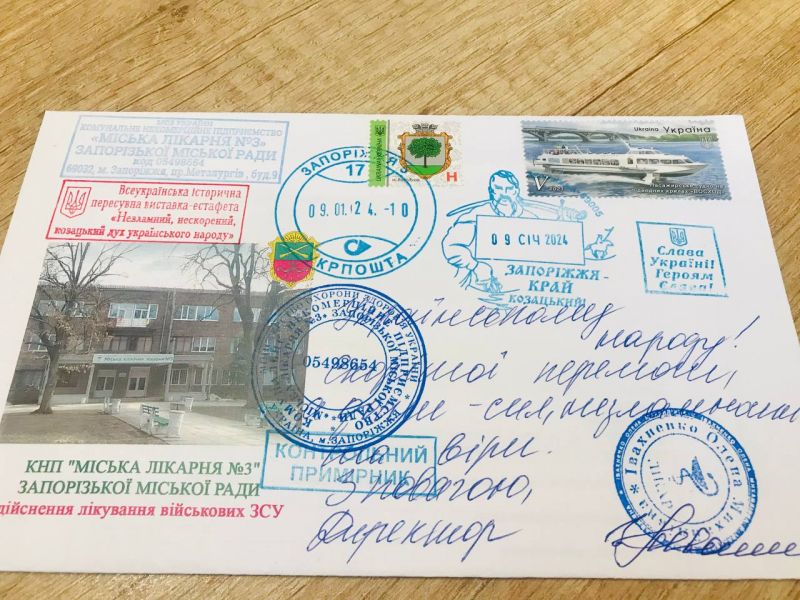 МОЗ УКРАЇНИ
КОМУНАЛЬНЕ НЕКОМЕРЦІЙНЕ ПІДПРИЄМСТВО
«МІСЬКА ЛІКАРНЯ №3»
ЗАПОРІЗЬКОЇ МІСЬКОЇ РАДИ
код 05498654
69032, м. Запоріжжя, пр.Металургів, буд.9
Всеукраїнська історична
пересувна виставка-естафета
«Незламний, нескорений,
козацький дух українського народу»
ЗАПОРІЖЖЯ
17
09.01.24.-10
УКРПОШТА
Н
Ukraina Україна
V 2023
09 СІЧ 2024
ЗАПОРІЖЖЯ-
КРАЙ
КОЗАЦЬКИЙ!
Слава
Україні!
Героям
Слава!
05498654
ЗАПОРІЗЬКОЇ МІСЬКОЇ РАДИ
УКРАЇНА, м. ЗАПОРІЖЖЯ
Українському
народу!
перемоги,
сил, незламності
віри.
З повагою,
Директор
КОНТРОЛЬНИЙ
ПРИМІРНИК
Івахненко Олена
ЛІКАР
КНП "МІСЬКА ЛІКАРНЯ №3"
ЗАПОРІЗЬКОЇ МІСЬКОЇ РАДИ
дійснення лікування військових ЗСУ